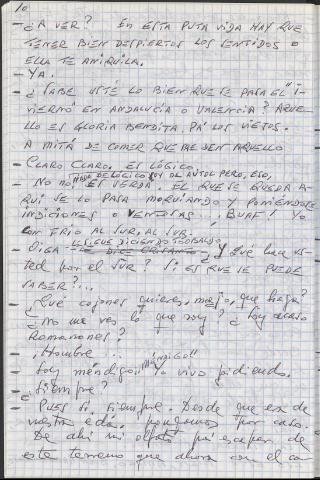 10
- ¿A VER? EN ESTA PUTA VIDA HAY QUE
TENER BIEN DESPIERTOS LOS SENTIDOS O
ELLA TE ANIQUILA.
- YA.
- ¿SABE USTÉ LO BIEN QUE SE PASA EL "I-
VIERNO EN ANDALUCÍA O VALENCIA? AQUE-
LLO ES GLORIA BENDITA. PÁ LOS VIEJOS.
A MITÁ DE COMER QUE ME DEN AQUELLO
- CLARO CLARO. ES LÓGICO.
NADA DE LÓGICO, SOY DE AUTOL PERO, ESO,
- NO NO ES VERDÁ. EL QUE SE QUEDA A-
QUÍ SE LO PASA MOQUIANDO Y PONIÉNDOSE
INDICIONES O VENTOSAS... BUAF! YO
CON FRÍO AL SUR, AL SUR.
LE SIGUE DICIENDO TEOBALDO
- OIGA - LE DICE ¿Y Qué hace us-
ted por el SUR? SI ES QUE SE PUEDE
SABER?...
- ¿Qué cojones quieres, majo, que haga?
¿No me ves lo que soy? ¿Soy acaso
Romanones?
- ¡Hombre...
- Soy méndigo!! ¡¡MÉNDIGO!! Yo vivo pidiendo.
- ¿Siempre?
- Pues sí, siempre. Desde que era de
vuestra edá, pongamos por caso.
De ahí mi olfato pá escapar de
este terreno que ahora con el ca-